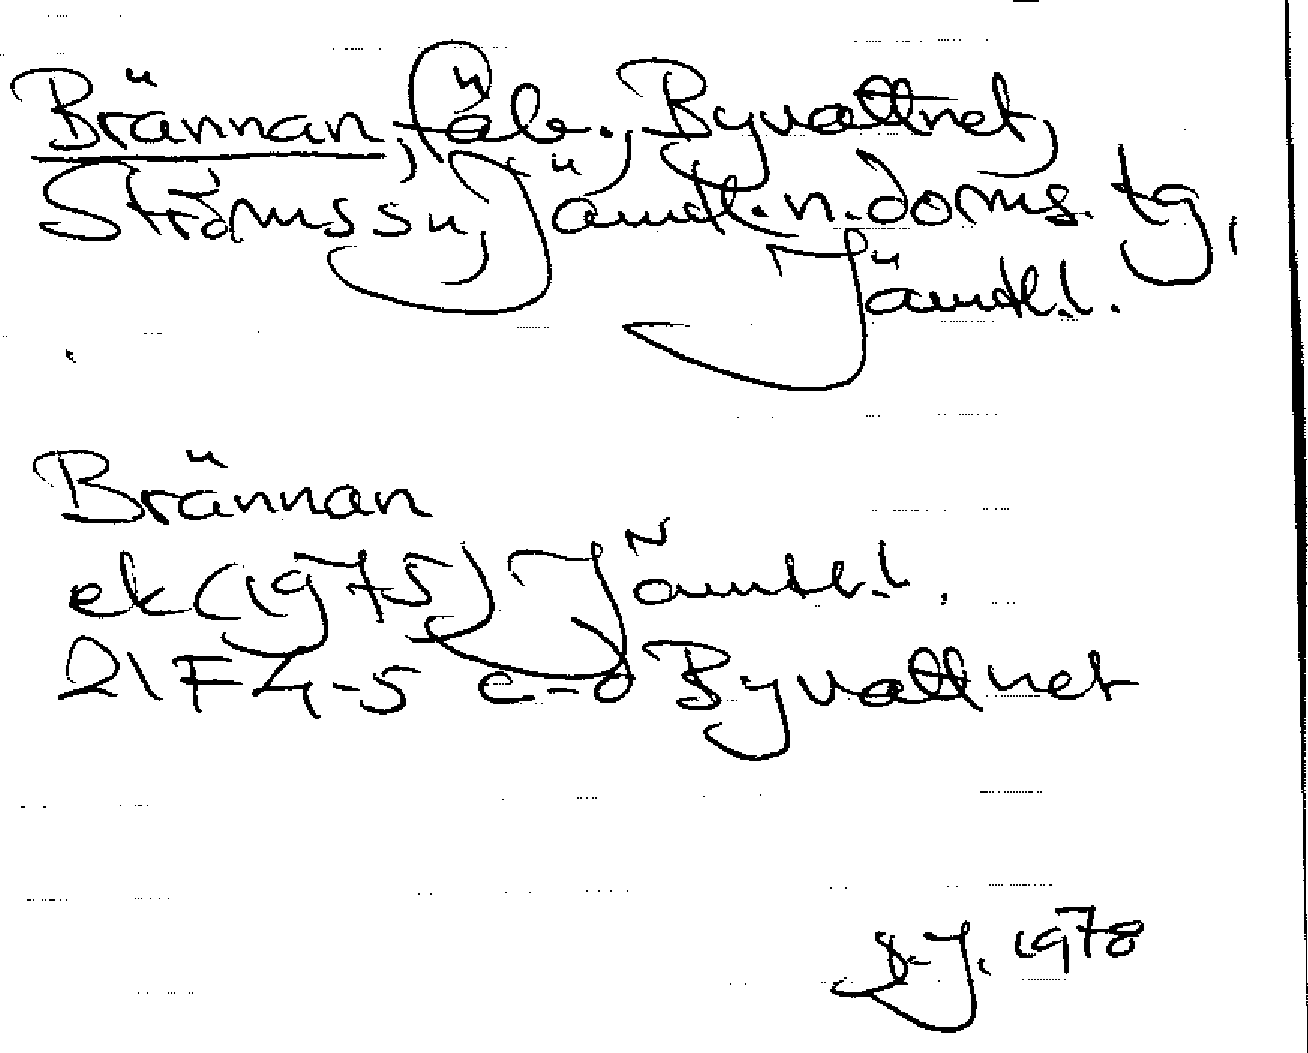 Brännan, fäb., Byvattnet,
Ströms sn, Jämtl. n. doms. tg,
Jämtl. l.
Brännan
ek (1975) Jämtl. l.
21F 4-5 c-d Byvattnet
S.J. 1978